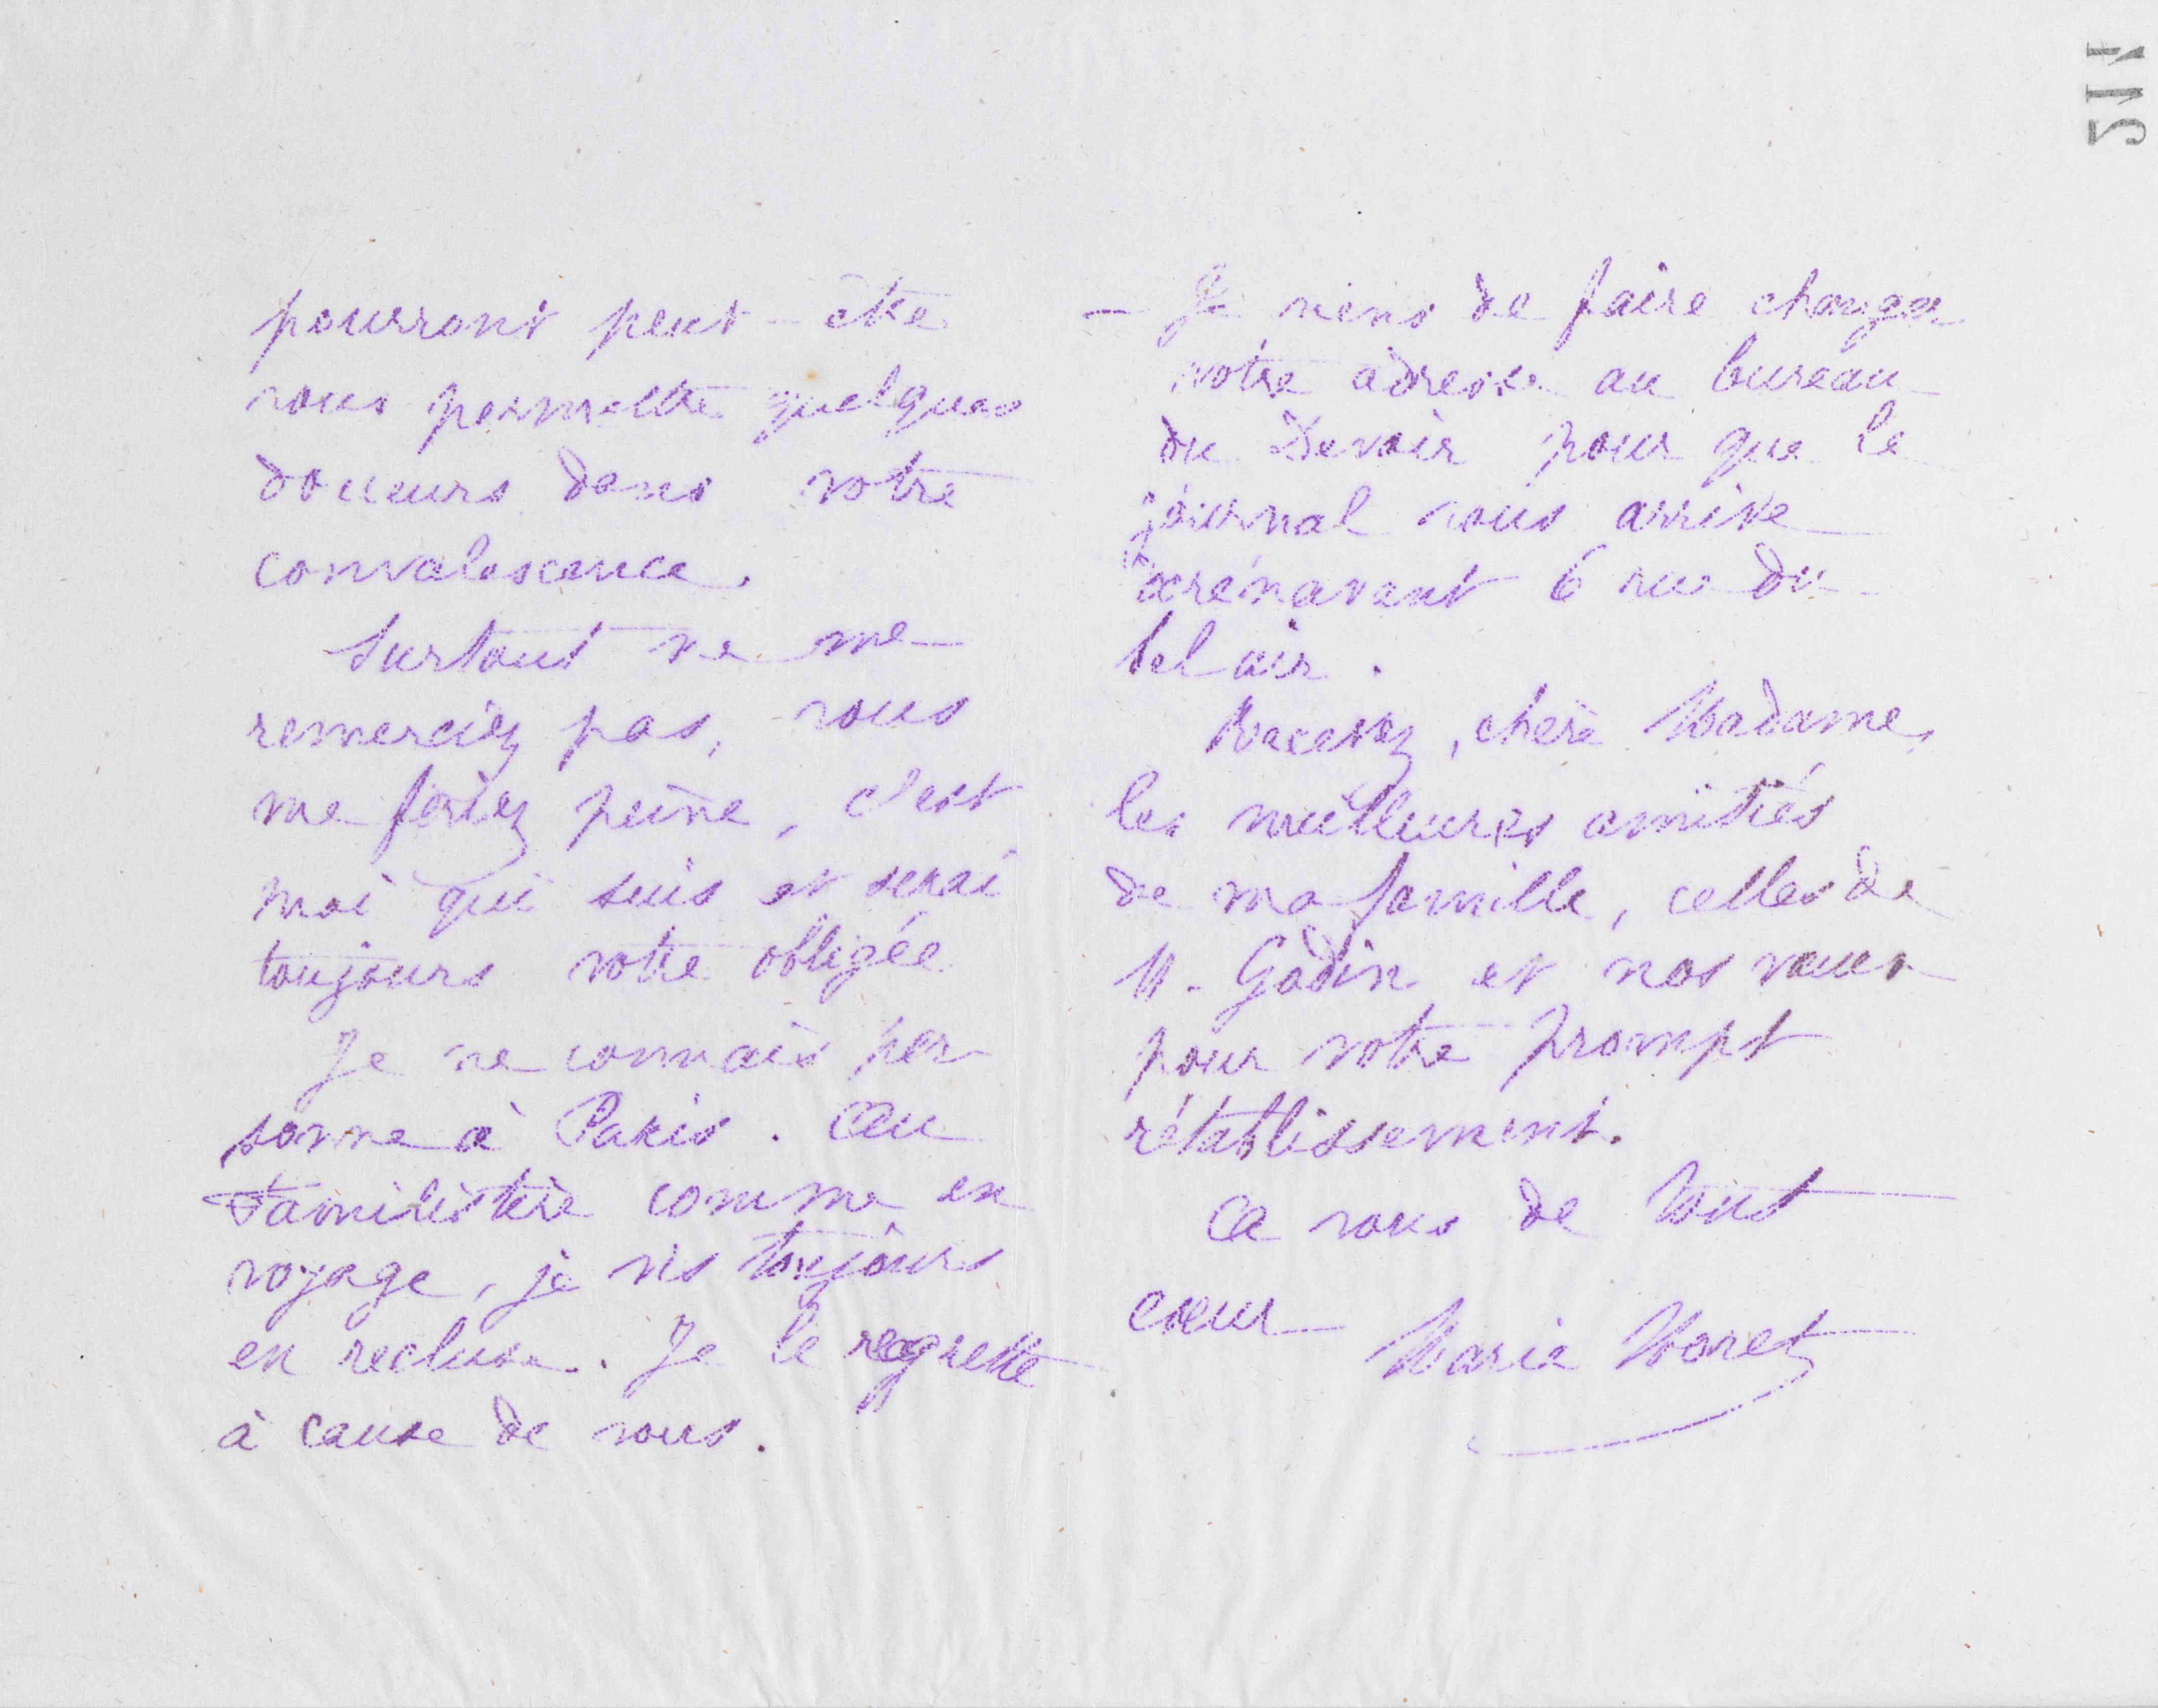 pourront peut-être
vous permettre quelques
douceurs dans votre
convalescence.
Surtout ne me
remerciez pas, vous
me feriez peine, c'est
moi qui suis et serai
toujours votre obligée
Je ne connais per
sonne à Paris. Au
Familistère comme en
voyage, je vis toujours
en recluse. Je le regrette
à cause de vous.
— Je viens de faire changer
votre adresse au bureau
du Devoir pour que le
journal vous arrive
dorénavant 6 rue du
bel air.
Recevez, chère Madame,
les meilleures amitiés
de ma famille, celles de
M. Godin et nos vœux
pour votre prompt
rétablissement.
A vous de tout
cœur
Marie Moret